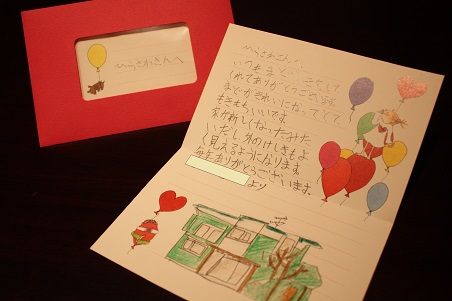 ひらさわさんへ
ひらさわさんへ
いつもまどそうじをして
くれてありがとうございます。
まどがきれいになってとて
もきもちいいです。
家が新しくなったみた
いだし、外のけしきもよ
く見えるようになります。
毎年ありがとうございます。
より